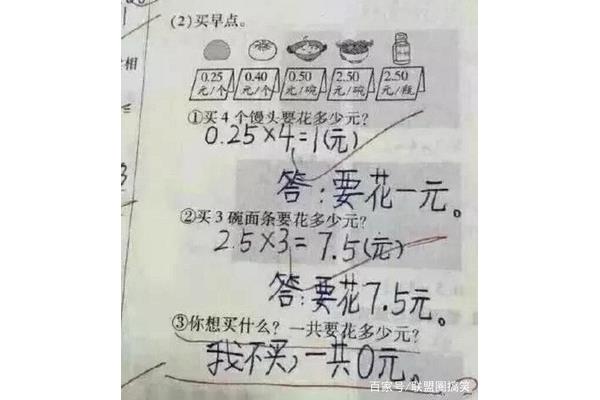 相
(2)买早点。
0.25 0.40 0.50 2.50 2.50
元/个 元/个 元/碗 元/碗 元/瓶
①买4个馒头要花多少元?
0.25×4=1(元)
答:要花一元。
②买3碗面条要花多少元?
2.5×3=7.5(元)
答:要花7.5元。
③你想买什么?一共要花多少元?
我不买,一共0元。
百家号/联盟圈搞笑